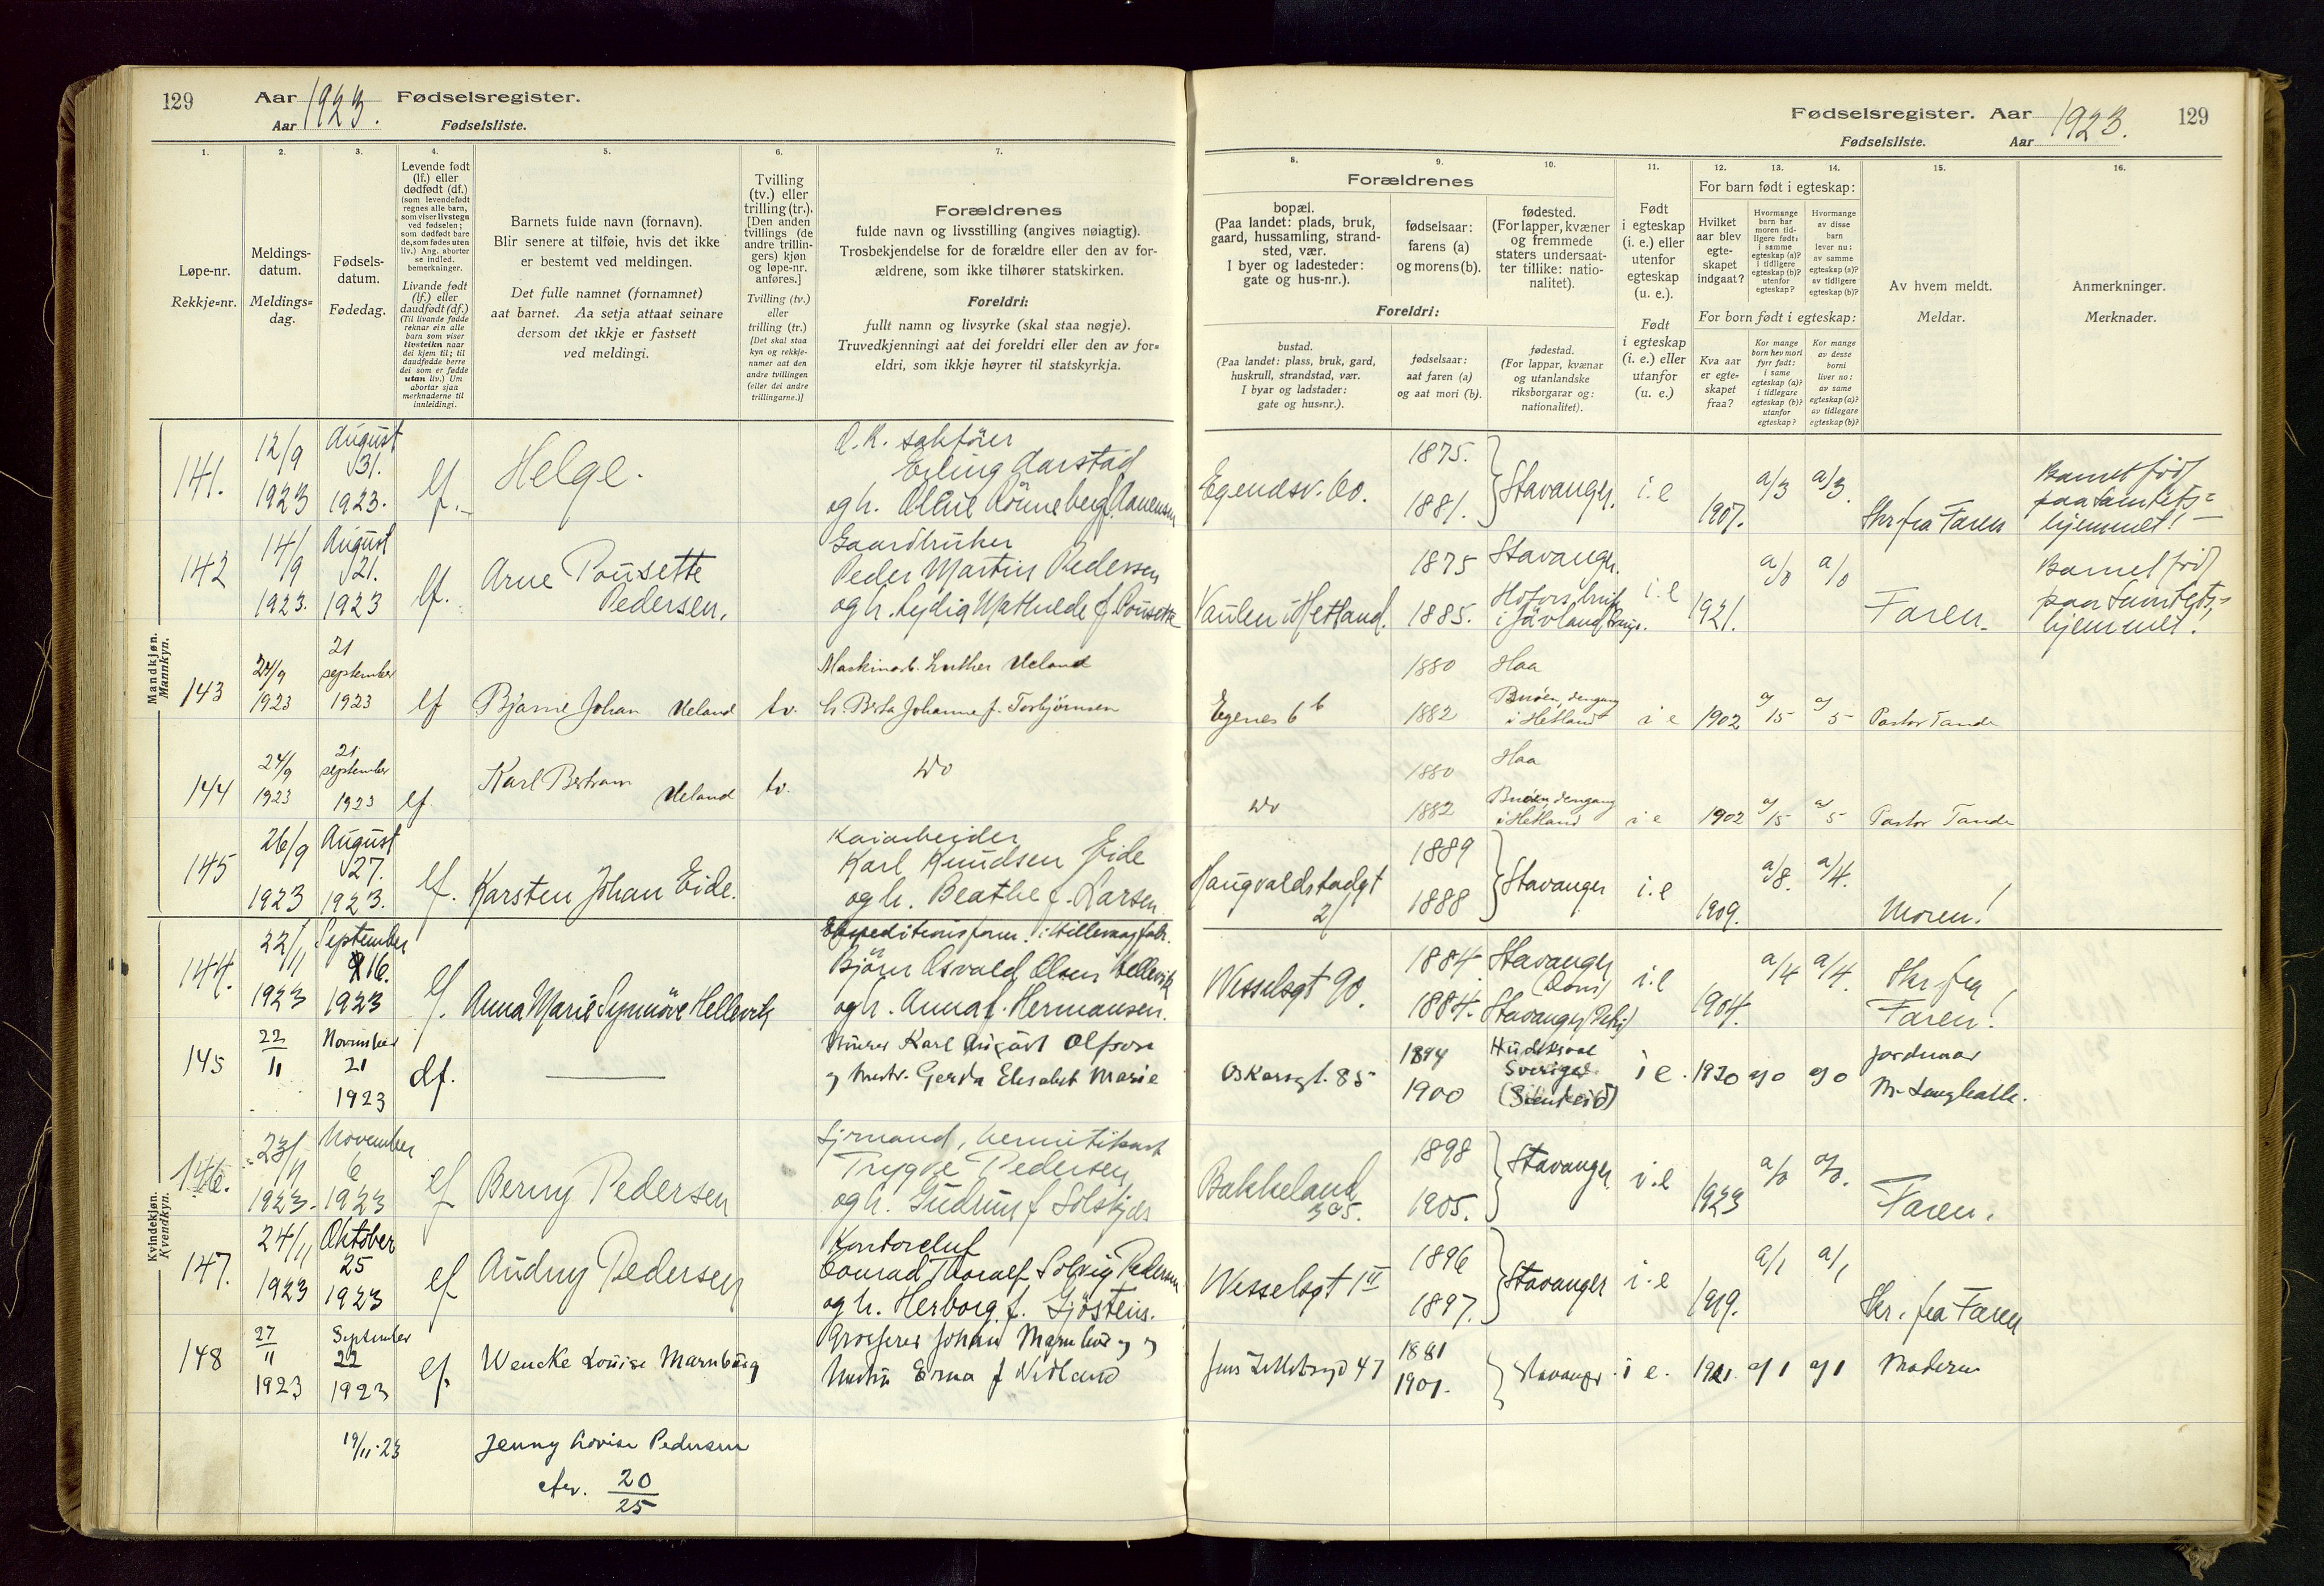 129
Aar 1923. Fødselsregister.
Aar Fødselsliste.
1.
Løpe-nr.
Rekkje=nr.
2.
Meldings-
datum.
Meldings=
dag.
3.
Fødsels-
datum.
Fødedag.
4.
Levende født
(lf.) eller
dødfødt (df.)
(som levendefødt
regnes alle barn,
som viser livstegn
ved fødselen;
som dødfødt bare
de, som fødes uten
liv.) Ang. aborter
se indled.
bemerkninger.
Livande født
(lf.) eller
daudfødt (df.)
(Til livande fødde
reknar ein alle
barn som viser
livsteikn naar
dei kjem til; til
daudfødde berre
dei som er fødde
utan liv.) Um
abortar sjaa
merknaderne til
innleidingi.
5.
Barnets fulde navn (fornavn).
Blir senere at tilføie, hvis det ikke
er bestemt ved meldingen.
Det fulle namnet (fornamnet)
aat barnet. Aa setja attaat seinare
dersom det ikkje er fastsett
ved meldingi.
6.
Tvilling
(tv.) eller
trilling (tr.).
[Den anden
tvillings (de
andre trillin-
gers) kjøn
og løpe-nr.
anføres.]
Tvilling (tv.)
eller
trilling (tr.)
[Det skal staa
kyn og rekkje-
numer aat den
andre tvillingen
(eller dei andre
trillingarne.)]
7.
Forældrenes
fulde navn og livsstilling (angives nøiagtig).
Trosbekjendelse for de forældre eller den av for-
ældrene, som ikke tilhører statskirken.
Foreldri:
fullt namn og livsyrke (skal staa nøgje).
Truvedkjenningi aat dei foreldri eller den av for=
eldri, som ikkje høyrer til statskyrkja.
Mandkjøn.
Mannkyn.
141.
12/9
1923
August
31.
1923.
lf.
Helge.
O.R. sakfører
Erling Aarstad
og h.
142
14/9
1923.
August
21.
1923
lf.
Arne Pousette
Pedersen.
Gaardbruker
Peder Martin Pedersen
og h. Lydia Mathilde f. Pousette
143
24/9
1923
21
september
1923
lf
Bjarne Johan Ueland
tv.
Maskinarb. Luther Ueland
h. Berta Johanne f. Torbjørnsen
144
24/9
1923
21
september
1923
lf
Karl Bertram Ueland
tv.
Do
145
26/9
1923
August
27.
1923.
lf.
Karsten Johan Eide.
Kaiarbeider
Karl Knudsen Eide
og h. Beathe f. Larsen
Kvindekjøn.
Kvendkyn.
144.
22/11
1923
September
16.
1923
lf.
Anna Marie Synnöve Hellevik
Björn Osvald Olsen Hellevik
og h. Anna f. Hermansen.
145
22
11
November
21
1923
df.
Murer Karl August Olfson
og hustr. Gerda Elisabet Marie
146.
23/11
1923.
November
6
1923
lf
Berny Pedersen
Trygve Pedersen
og h. Gudrun f Solskjær
147.
24/11
1923
Oktober
25
1923
lf
Audny Pedersen
Kontorchef
Conrad Thoralf Solvig Pedersen
og h. Herborg f. Gjøstein.
148
27
11
1923
September
22
1923
lf.
Wencke Louise Marnburg
Grosserer Johan Marnburg og
hustru Erna f Nedland
19/11.23
Jenny Lovise Pedersen
efv. 20
25
Fødselsregister. Aar 1923.
129
Fødselsliste. Aar
8.
Forældrenes
bopæl.
(Paa landet: plads, bruk,
gaard, hussamling, strand-
sted, vær.
I byer og ladesteder:
gate og hus-nr.).
Foreldri:
bustad.
(Paa landet: plass, bruk, gard,
huskrull, strandstad, vær.
I byar og ladstader:
gate og hus=nr.).
9.
fødselsaar:
farens (a)
og morens (b).
fødselsaar:
aat faren (a)
og aat mori (b).
10.
fødested.
(For lapper, kvæner
og fremmede
staters undersaat-
ter tillike: natio-
nalitet).
fødestad.
(For lappar, kvænar
og utanlandske
riksborgarar og:
nationalitet).
11.
Født
i egteskap
(i. e.) eller
utenfor
egteskap
(u. e.).
Født
i egteskap
(i. e.) eller
utanfor
(u. e.)
For barn født i egteskap:
12.
Hvilket
aar blev
egte-
skapet
indgaat?
For born født i egteskap:
Kva aar
er egte=
skapet
fraa?
13.
Hvormange
barn har
moren tid-
ligere født:
i samme
egteskap (a)?
i tidligere
egteskap (b)?
utenfor
egteskap?
Kor mange
born hev mori
fyrr født:
i same
egteskap (a)?
i tidlegare
egteskap (b)?
utanfor
egteskap?
14.
Hvormange
av disse
barn
lever nu:
av samme
egteskap (a)?
av tidligere
egteskap (b)?
Kor mange
av desse
borni
liver no:
av same
egteskap (a)?
av tidlegare
egteskap (b)?
15.
Av hvem meldt.
Meldar.
16.
Anmerkninger.
Merknader.
Egendsv. 60.
1875.
1881.
Stavanger.
i.e
1907.
a/3
a/3.
Skr fra Faren
Barnet född
paa Samtids=
hjemmet!
Vaulen i Hetland.
1875
1885.
Stavanger.
i.e
1921.
a/0
a/0
Faren.
Barnet född
hjemmet!
Egenes 6 b
1880
1882
Haa
Buöen, dengang
i Hetland
i e
1902
a/15
a/5
Pastor Tande
Do
1880
1882
Haa
Buöen, dengang
i Hetland
i e
1902
a/15
a/5
Pastor Tande
Haugvaldstadgt
21
1889
1888
Stavanger
i.e
1909.
a/8.
a/4.
Moren!
Wesselsgt 90.
1884.
1884.
Stavanger
(Dom)
Stavanger (Petri)
i.e
1904.
a/4
a/4.
Skr fra
Faren!
Oskarsgt. 85
1894
1900
Sverige
i e.
1920
a/0
a/0
Jordmor
Bakkeland
305.
1898
1905.
Stavanger
i.e
1923
a/0
a/0.
Faren.
Wesselsgt
1896
1897.
Stavanger
i.e
1919.
a/1
a/1
Skr. fra Faren
Jens Zetlitzgt 47
1881
1901.
Stavanger
i e.
1921.
a/1
a/1
Moderen